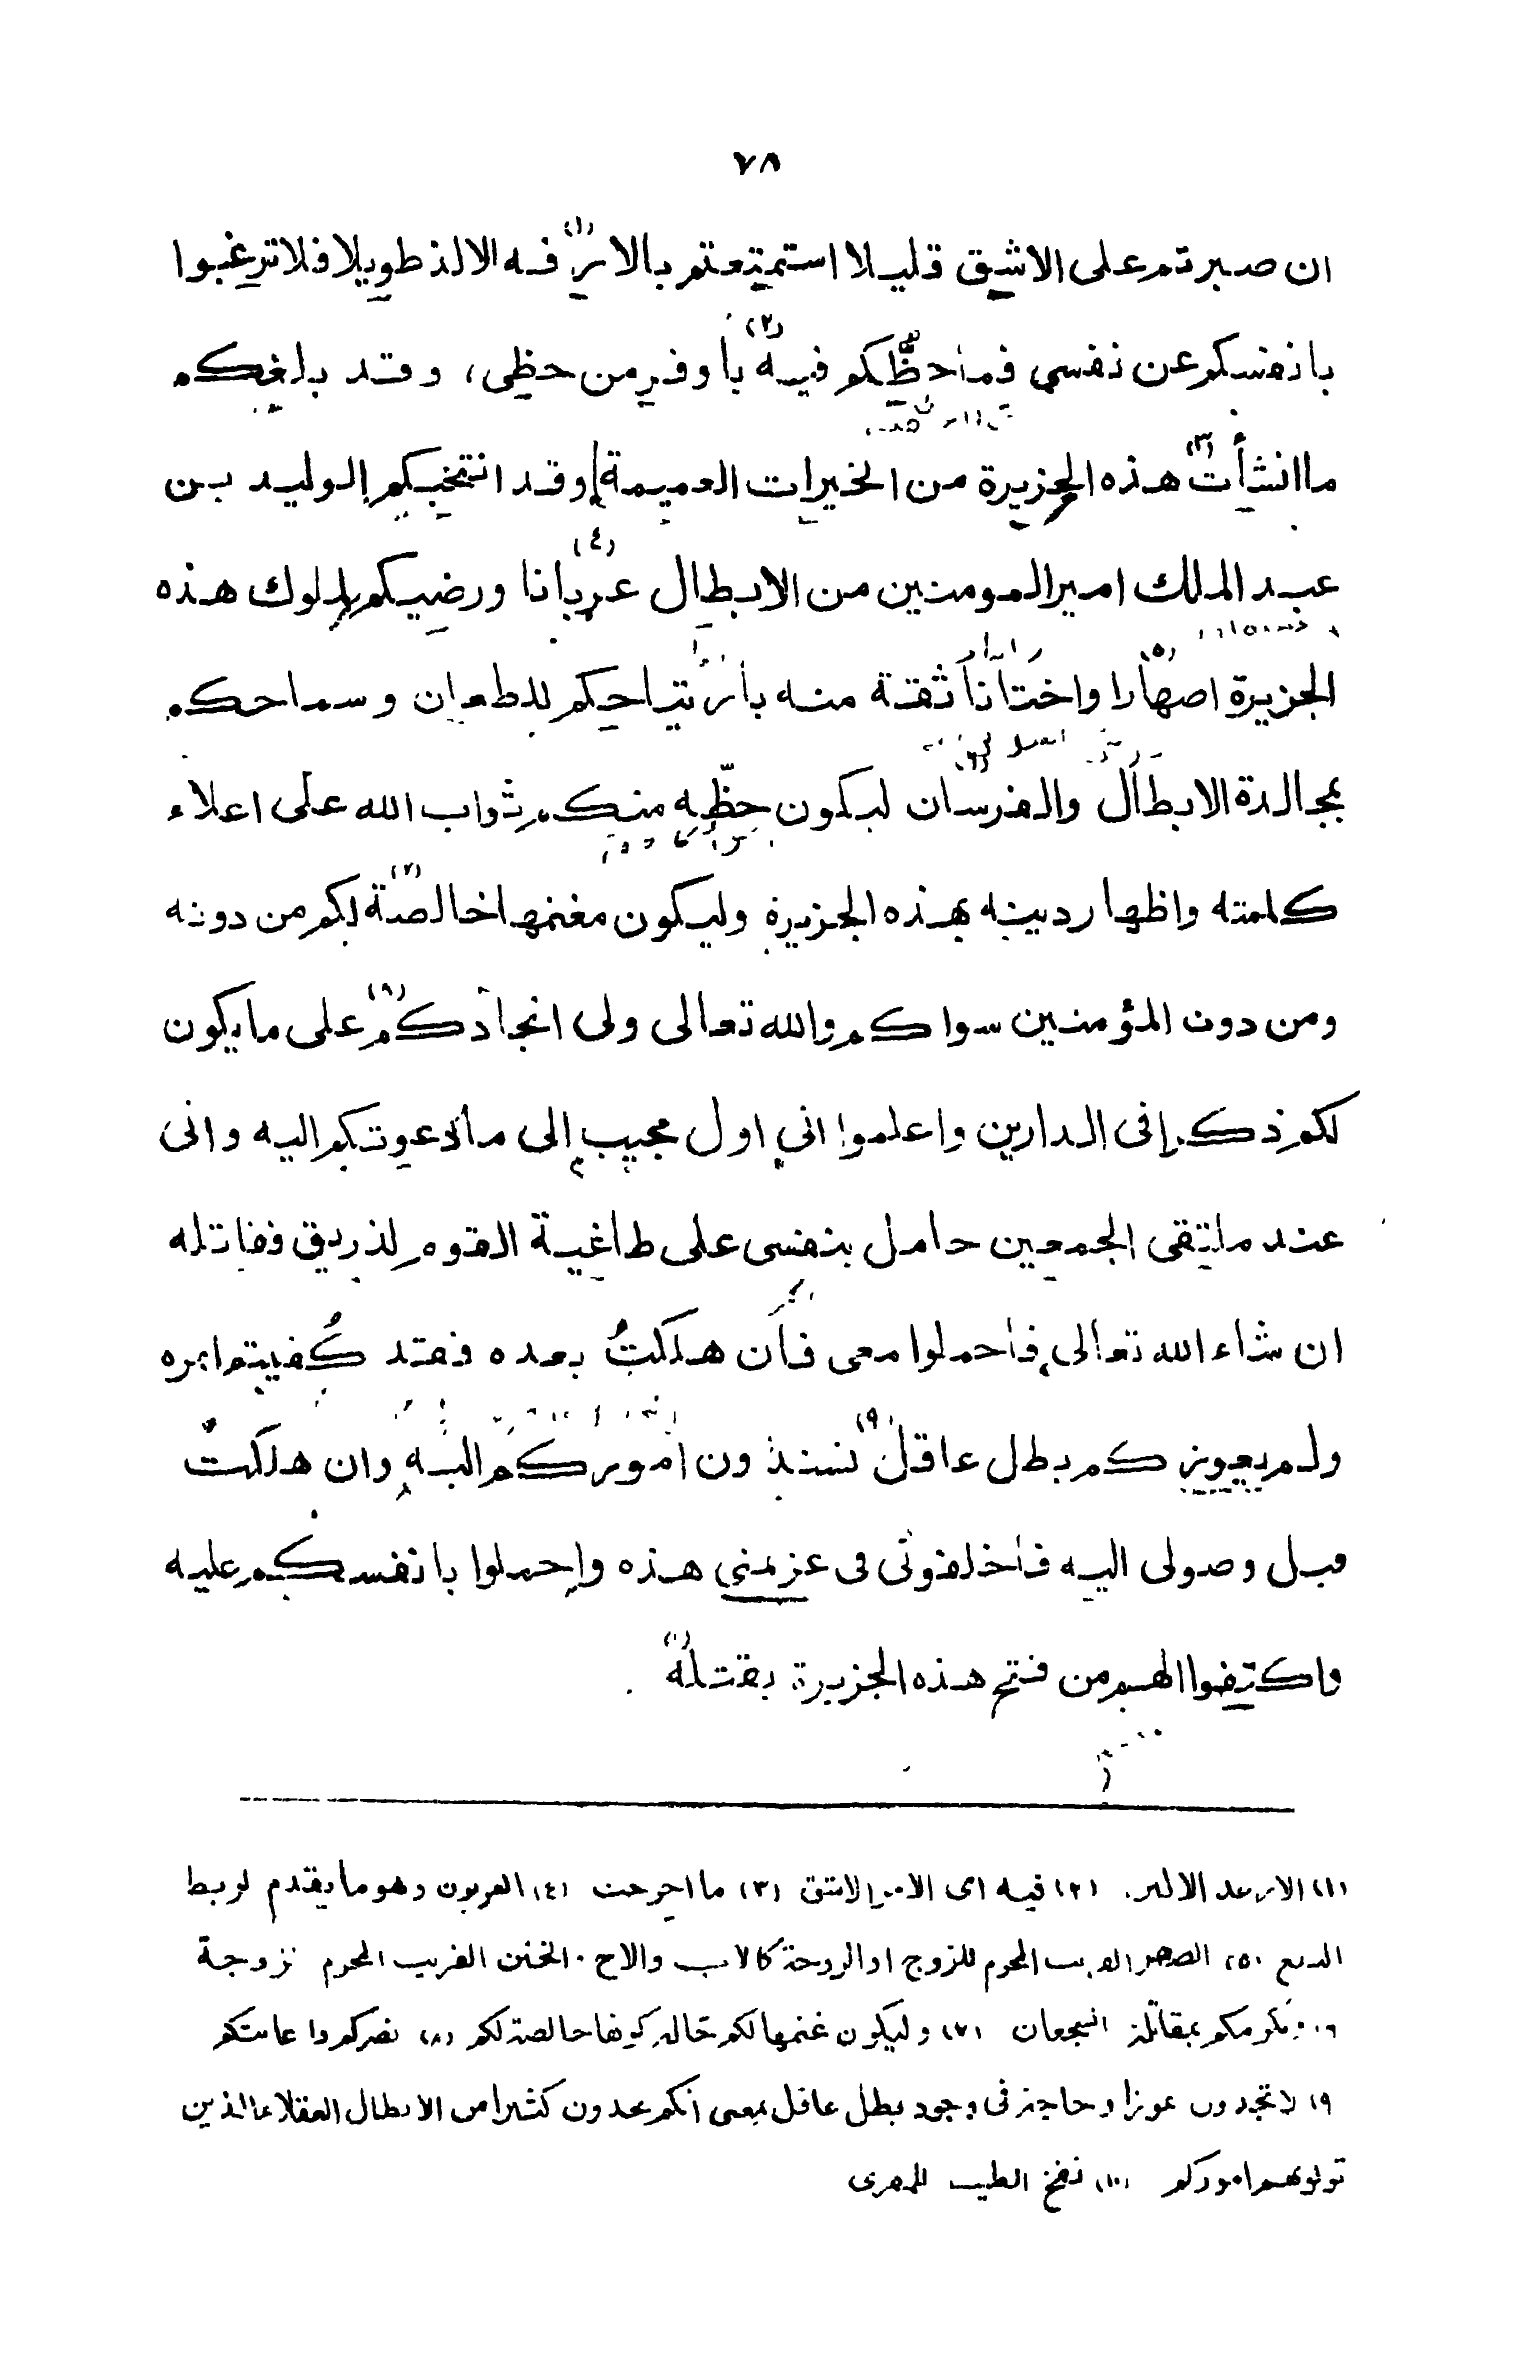 ٧٨
ان صبرتم على الاشق قليلا استمتعتم بالار(١)فه الالذ طويلا فلا ترغبوا
بانفسكم عن نفسي فماحظّكم فيه(٢) باوفر من حظي، وقد بلغكم
ما انشأت(٣) هذه الجزيرة من الخيرات العميمة وقد انتخبكم الوليد بن
عبد الملك امير المومنين من الابطال عربانا(٤) ورضيكم لملوك هذه
الجزيرة اصهارا(٥) واختانا ثقة منه بارتياحكم للطعان وسماحكم
بمجالدة الابطال والفرسان(٦) ليكون حظّه منكم ثواب الله على اعلاء
كلمته واظهار دينه بهذه الجزيرة وليكون مغنمها خالصة(٧) لكم من دونه
ومن دون المؤمنين سواكم والله تعالى ولى انجادكم(٨) على ما يكون
لكم ذكرا فى الدارين واعلموا اني اول مجيب الى ما دعوتكم اليه وانى
عند ملتقى الجمعين حامل بنفسى على طاغية القوم لذريق فقاتله
ان شاء الله تعالى فاحملوا معى فان هلكتُ بعده فقد كُفيتم امره
ولم يعوزكم بطل عاقل(٩) تسندون اموركم اليه وان هلكتُ
قبل وصولى اليه فاخلفونى فى عزيمتى هذه واحملوا بانفسكم عليه
واكتفوا الهم من فتح هذه الجزيرة بقتله(١٠)
(١) الارغد الالين. (٢) فيه اى الامر الاشق (٣) ما اخرجت (٤) العربون وهو ما يقدم لربط
البيع (٥) الصهر القريب المحرم للزوج او الزوجة كالاب والاخ. الختن القريب المحرم لزوجة
(٦) وتكرمكم بمقاتلة الشجعان (٧) وليكون غنمها لكم حالة كونها خالصة لكم (٨) نصركم واعانتكم
(٩) لا تجدون عوزا وحاجة فى وجود بطل عاقل بمعنى انكم تجدون كثيرا من الابطال العقلاء الذين
تولونهم اموركم (١٠) نفح الطيب للمقرى